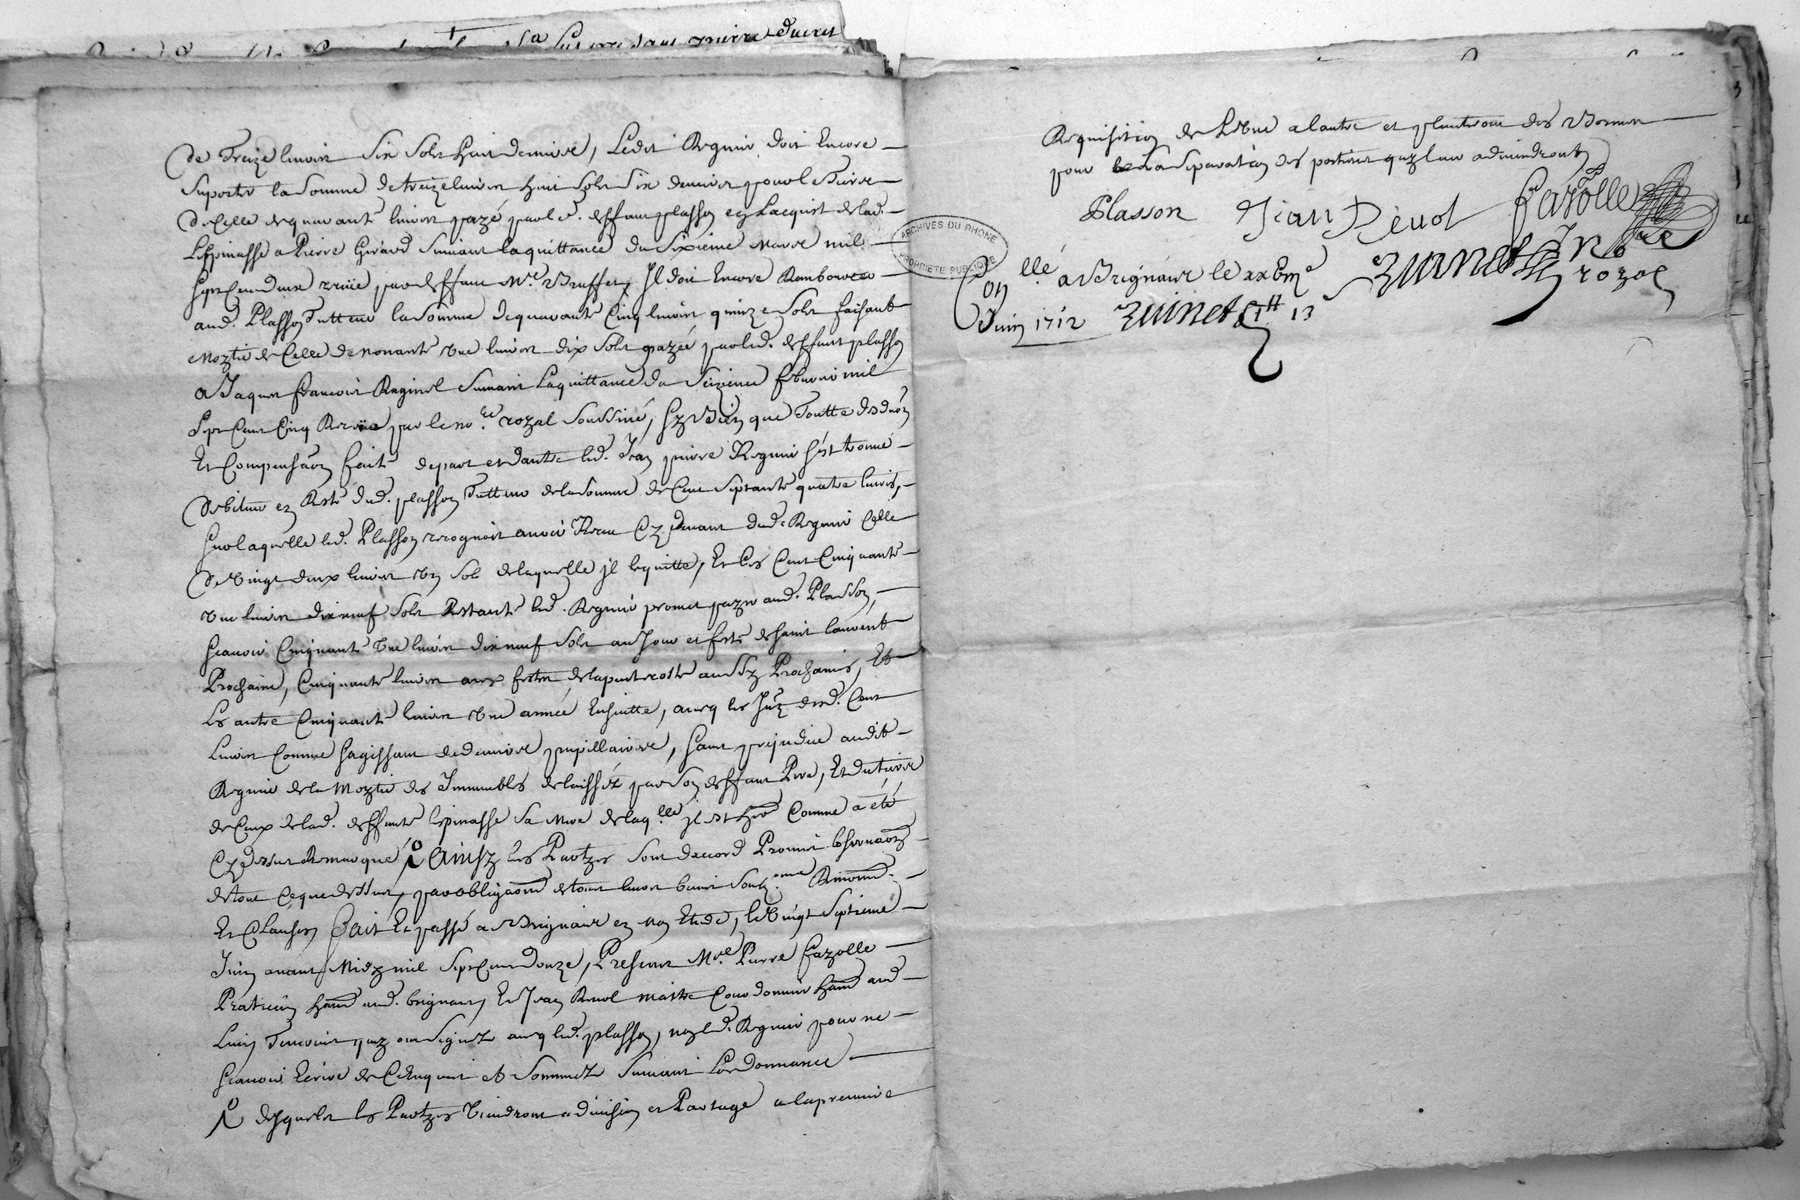 De Treize livres six sols huit deniers, Ledit Regnié doit Encore
suporter la somme de treize livres huit sols six deniers pour le Tiers
de Celle de quarante livres payé par led. deffunt plasson en Lacquit de lad.
Lespinasse a Pierre Girard suivant la quittance du sixieme mars mil
sept Cent deux receüe par deffunt Me. Jl doit Encore Rembourser
aud. Plasson Tutteur la somme de quarante Cinq livres quinze sols faisant
moytié de Celle de nonante une livres dix sols payéé par led. deffunt plasson
a Jaques françois Raginel suivant Laquittance du seizieme febvrier mil
sept Cent Cinq Receüe par le nore. royal soussiné, sy Bien que Toutte deduon
Et Compensaon faitte depart et dautre led. Jean pierre Regnié sest trouvé
debiteur en Reste dud. plasson Tutteur de la somme de Cent septante quatre livres,
sur laquelle led. Plasson recognoit avoir Receu Cy devant dud. Regnié Celle
de vingt deux livres un sol de laquelle jl le quitte, Et les Cent Cinquante
une livres dixneuf sols Restants led. Regnié promet payer aud. Plasson,
scavoir Cinquante une livres dixneuf sols au Jour et feste de saint laurent
Prochaine, Cinquante livres aux festes de la pentecoste aussy Prochaines, Et
les autre Cinquante livres une année Ensuitte, avecq les Jnt. desd. Cent
Livres Comme sagissant de deniers pupillaires, sans prejudice audit
Regnié de la moytié des Jmmeubles delaissés par son deffunt Pere, Et du tiers
de Ceux de lad. deffunte lespinasse sa mere de laqlle. jl est her. Comme a été
Cy dessus Remarqué Ainsy les Partyes sont daccord Promis observaon
de tout Ce que dessus, par obligaons de tous leurs biens
Et Clauses, fait Et passé a Brignais en mon Etude, le vingt septieme
Juin avant Midy mil sept Cent douze, Presents Mre. Pierre fayolle
Praticien hant aud. brignais, Et Jean Revol maitre Cordonnier hant aud.
Lieu Temoins quy ont signez avecq led. plasson, non led. Regnié pour ne
scavoir Ecrire de Ce Enquis et sommez suivant Lordonnance
desqueles les Partyes viendront a division et Partage a la premiere
Requisition de Lune a lautre et planteront des Bornes
pour la separation des portions quy leur adviendront
Plasson Jean Revol fayolle
royal
Con llé. a Brignais le xxEme
Juin 1712 13
ARCHIVES DU RHONE
PROPRIETE PUBLIQUE